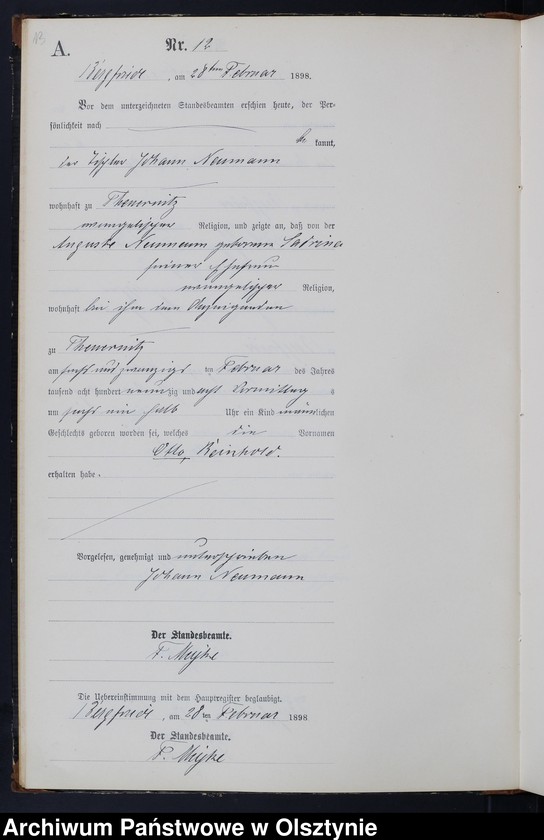 A.
Nr. 12
Bergfriede, am 28ten Februar 1898.
Vor dem unterzeichneten Standesbeamten erschien heute, der Per-
sönlichkeit nach
be kannt,
der Tischler Johann Neumann
wohnhaft zu Theuernitz
evangelischer Religion, und zeigte an, daß von der
Auguste Neumann geborene
seiner Ehefrau
evangelischer Religion,
wohnhaft bei ihm dem Anzeigenden
zu Theuernitz
am sechs und zwanzigsten Februar des Jahres
tausend acht hundert neunzig und acht Vormittags
um sechs ein halb Uhr ein Kind männlichen
Geschlechts geboren worden sei, welches die Vornamen
Otto Reinhold.
erhalten habe.
Vorgelesen, genehmigt und unterschrieben
Johann Neumann
Der Standesbeamte.
Die Uebereinstimmung mit dem Hauptregister beglaubigt.
Bergfriede, am 28ten Februar 1898
Der Standesbeamte.
Archiwum Państwowe w Olsztynie